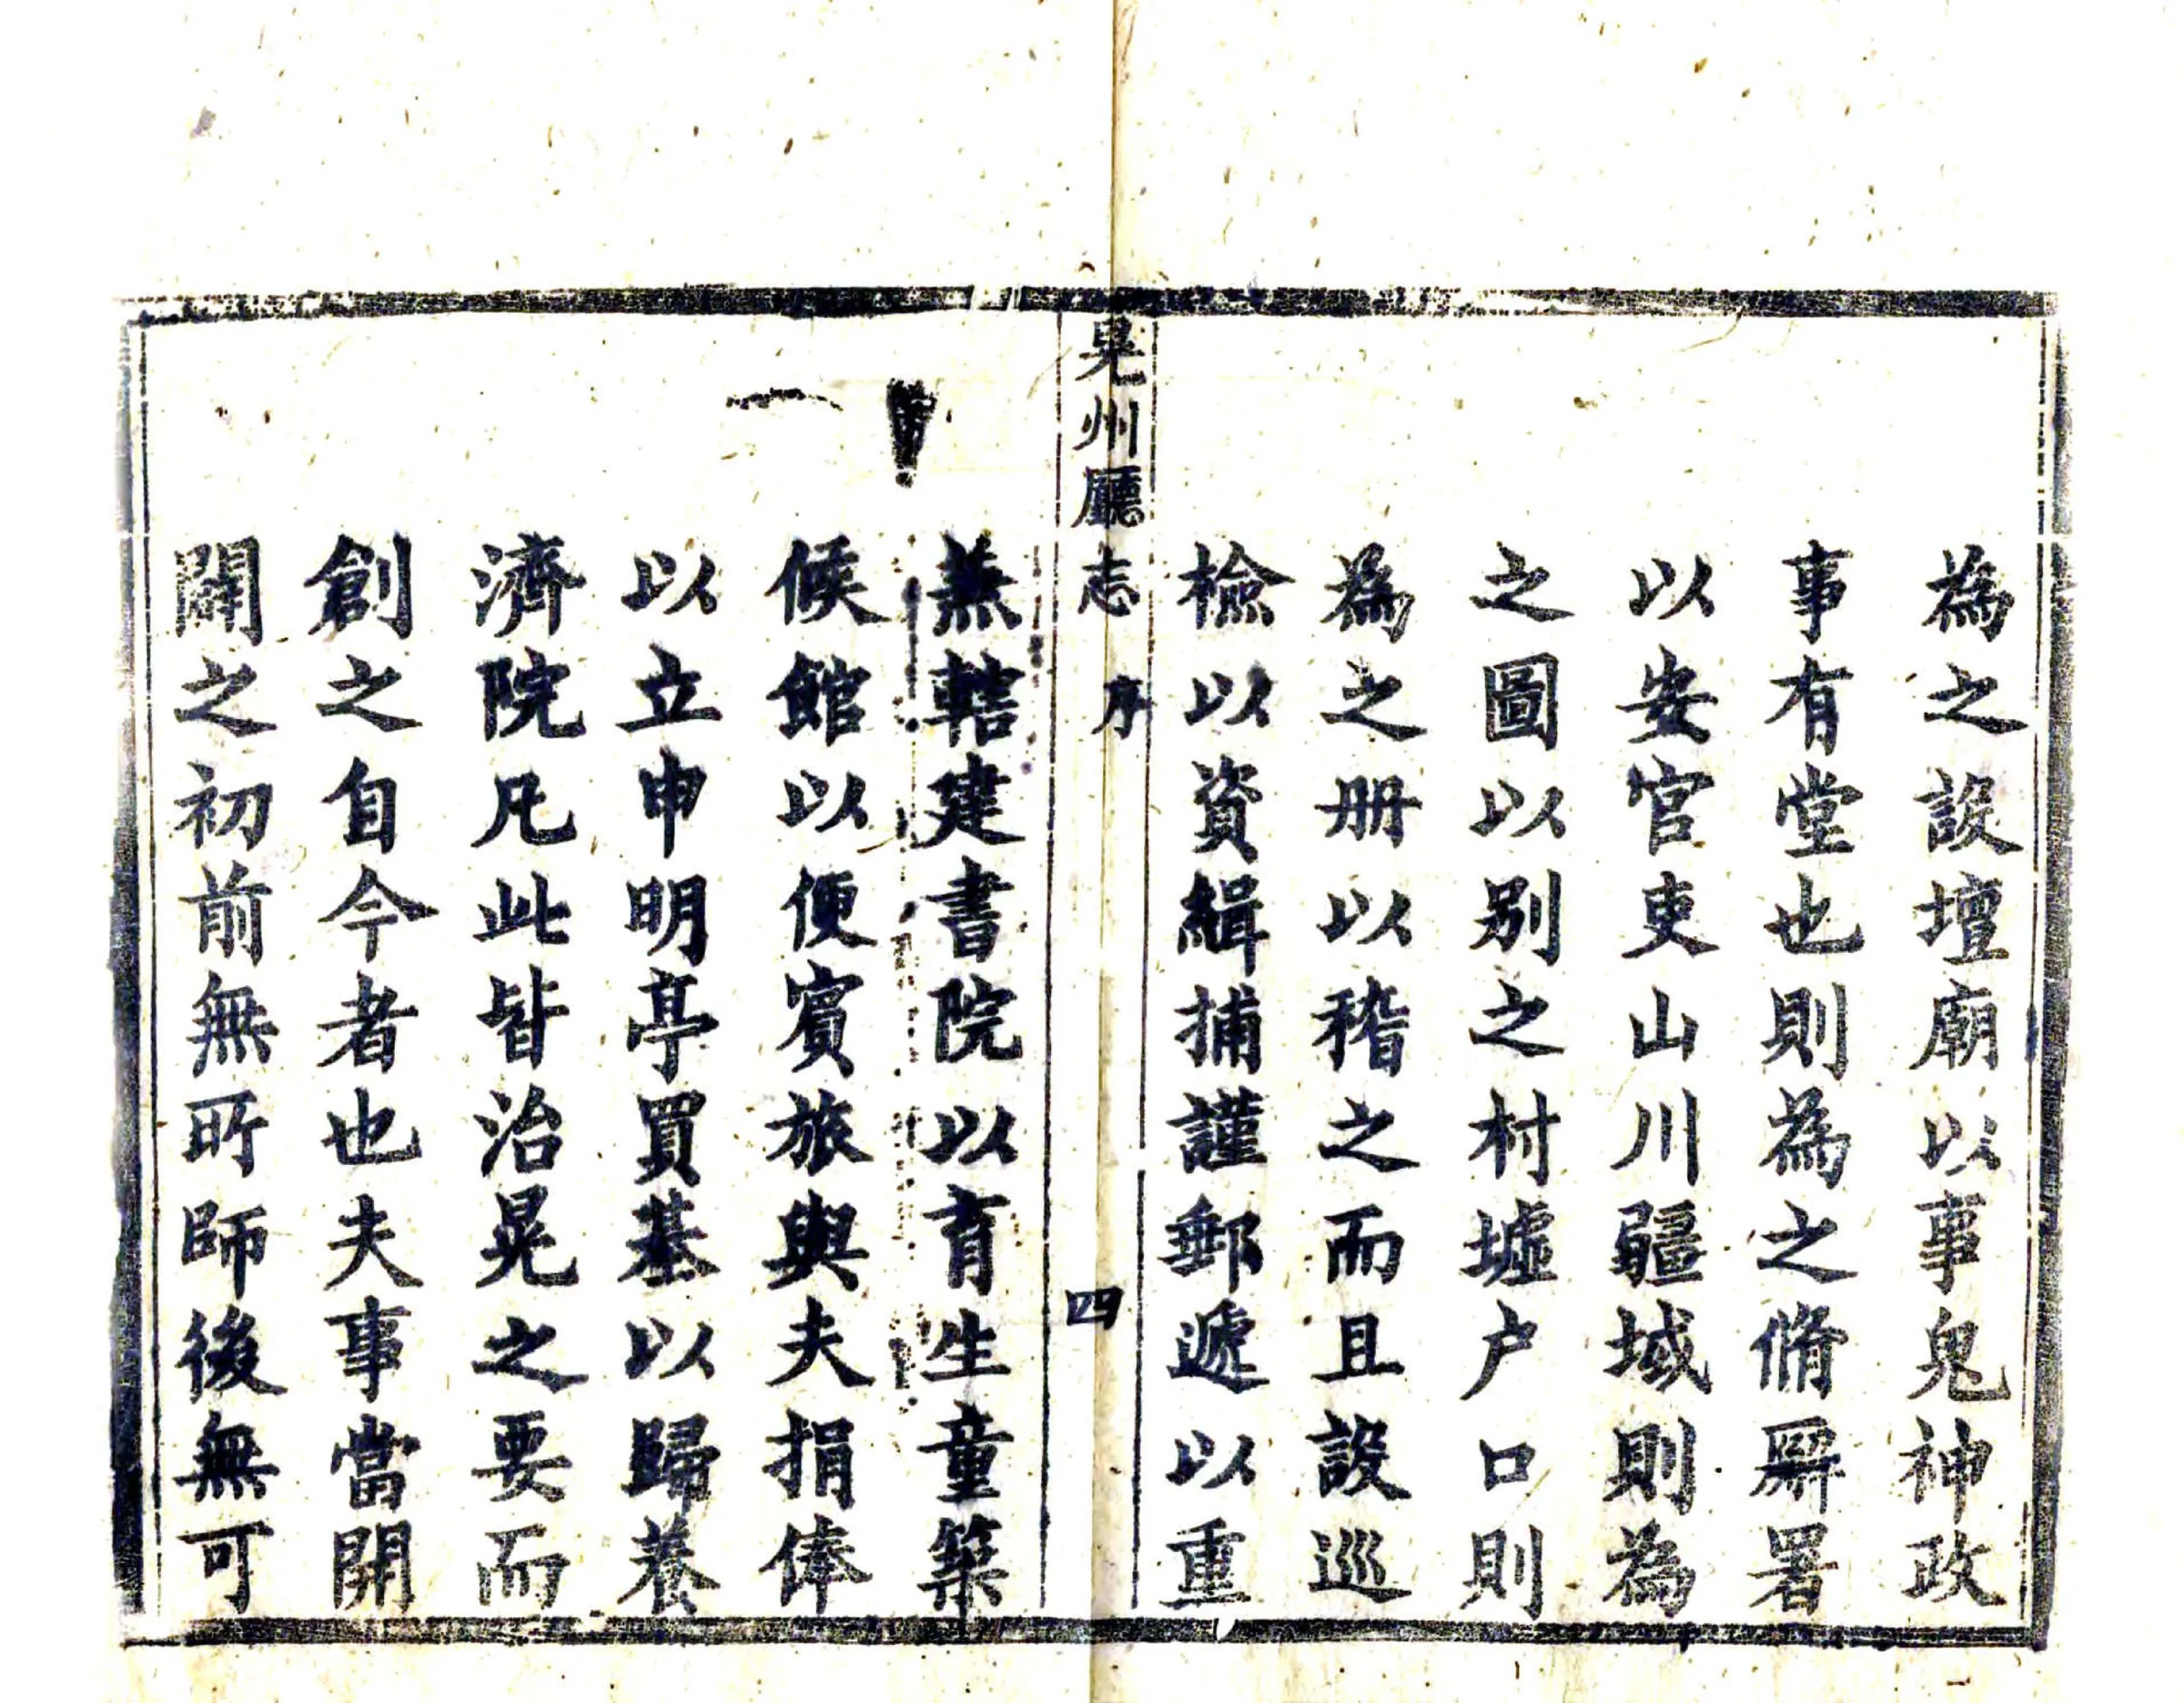 為之設壇廟以事鬼神政
事有堂也則為之脩廨署
以安官吏山川疆域則為
之圖以别之村墟户口則
為之册以稽之而且設巡
檢以資緝捕謹郵遞以重
晃州廳志 序 四
兼轄建書院以育生童築
候館以便賓旅與夫捐俸
以立申明亭買基以歸養
濟院凡此皆治晃之要而
創之自今者也夫事當開
闢之初前無所師後無可